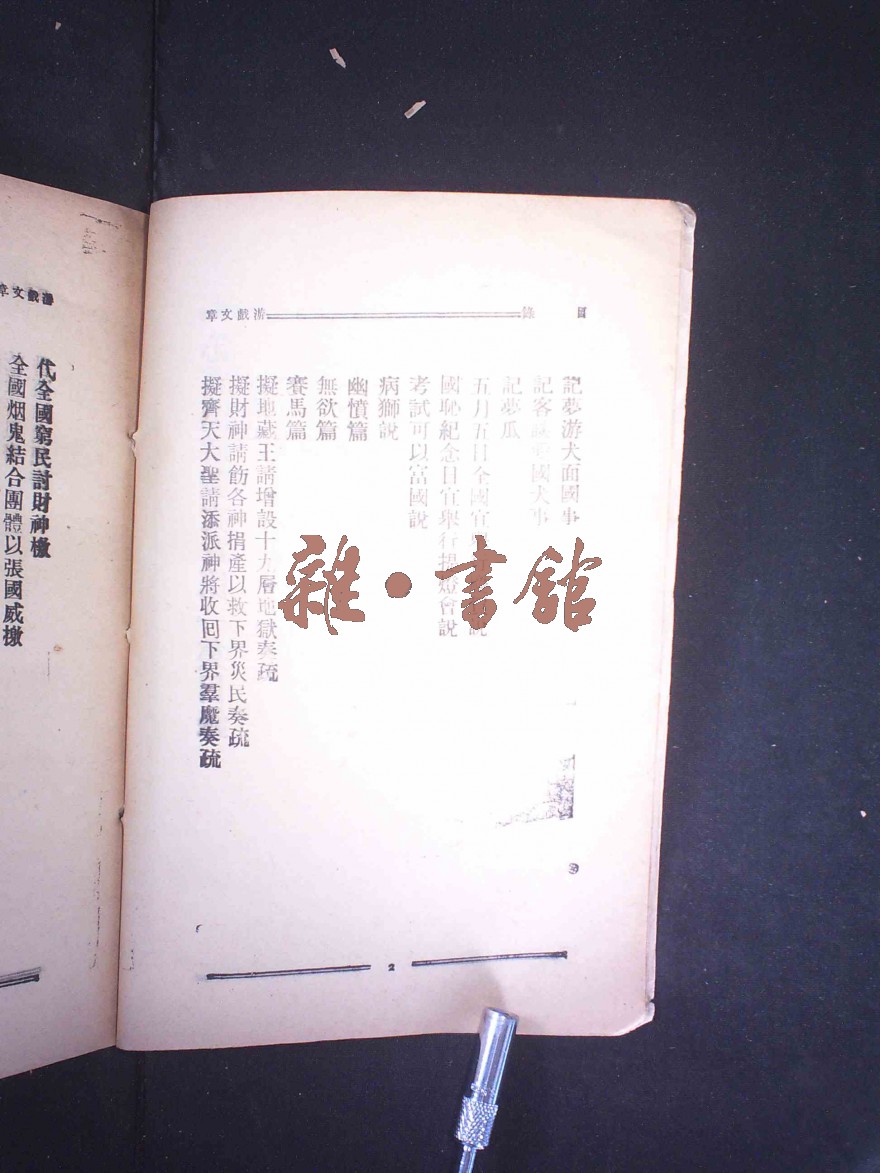 目 錄 游戲文章
記夢游大面國事
記客談 國犬事
記夢瓜
五月五日全國宜 說
國恥紀念日宜舉行提燈會說
考試可以富國說
病獅說
幽憤篇
無欲篇
賽馬篇
擬地藏王請增設十九層地獄奏疏
擬財神請飭各神捐產以救下界災民奏疏
擬齊天大聖請添派神將收回下界羣魔奏疏
2
游戲文章
代全國窮民討財神檄
全國烟鬼結合團體以張國威檄
雜·書館